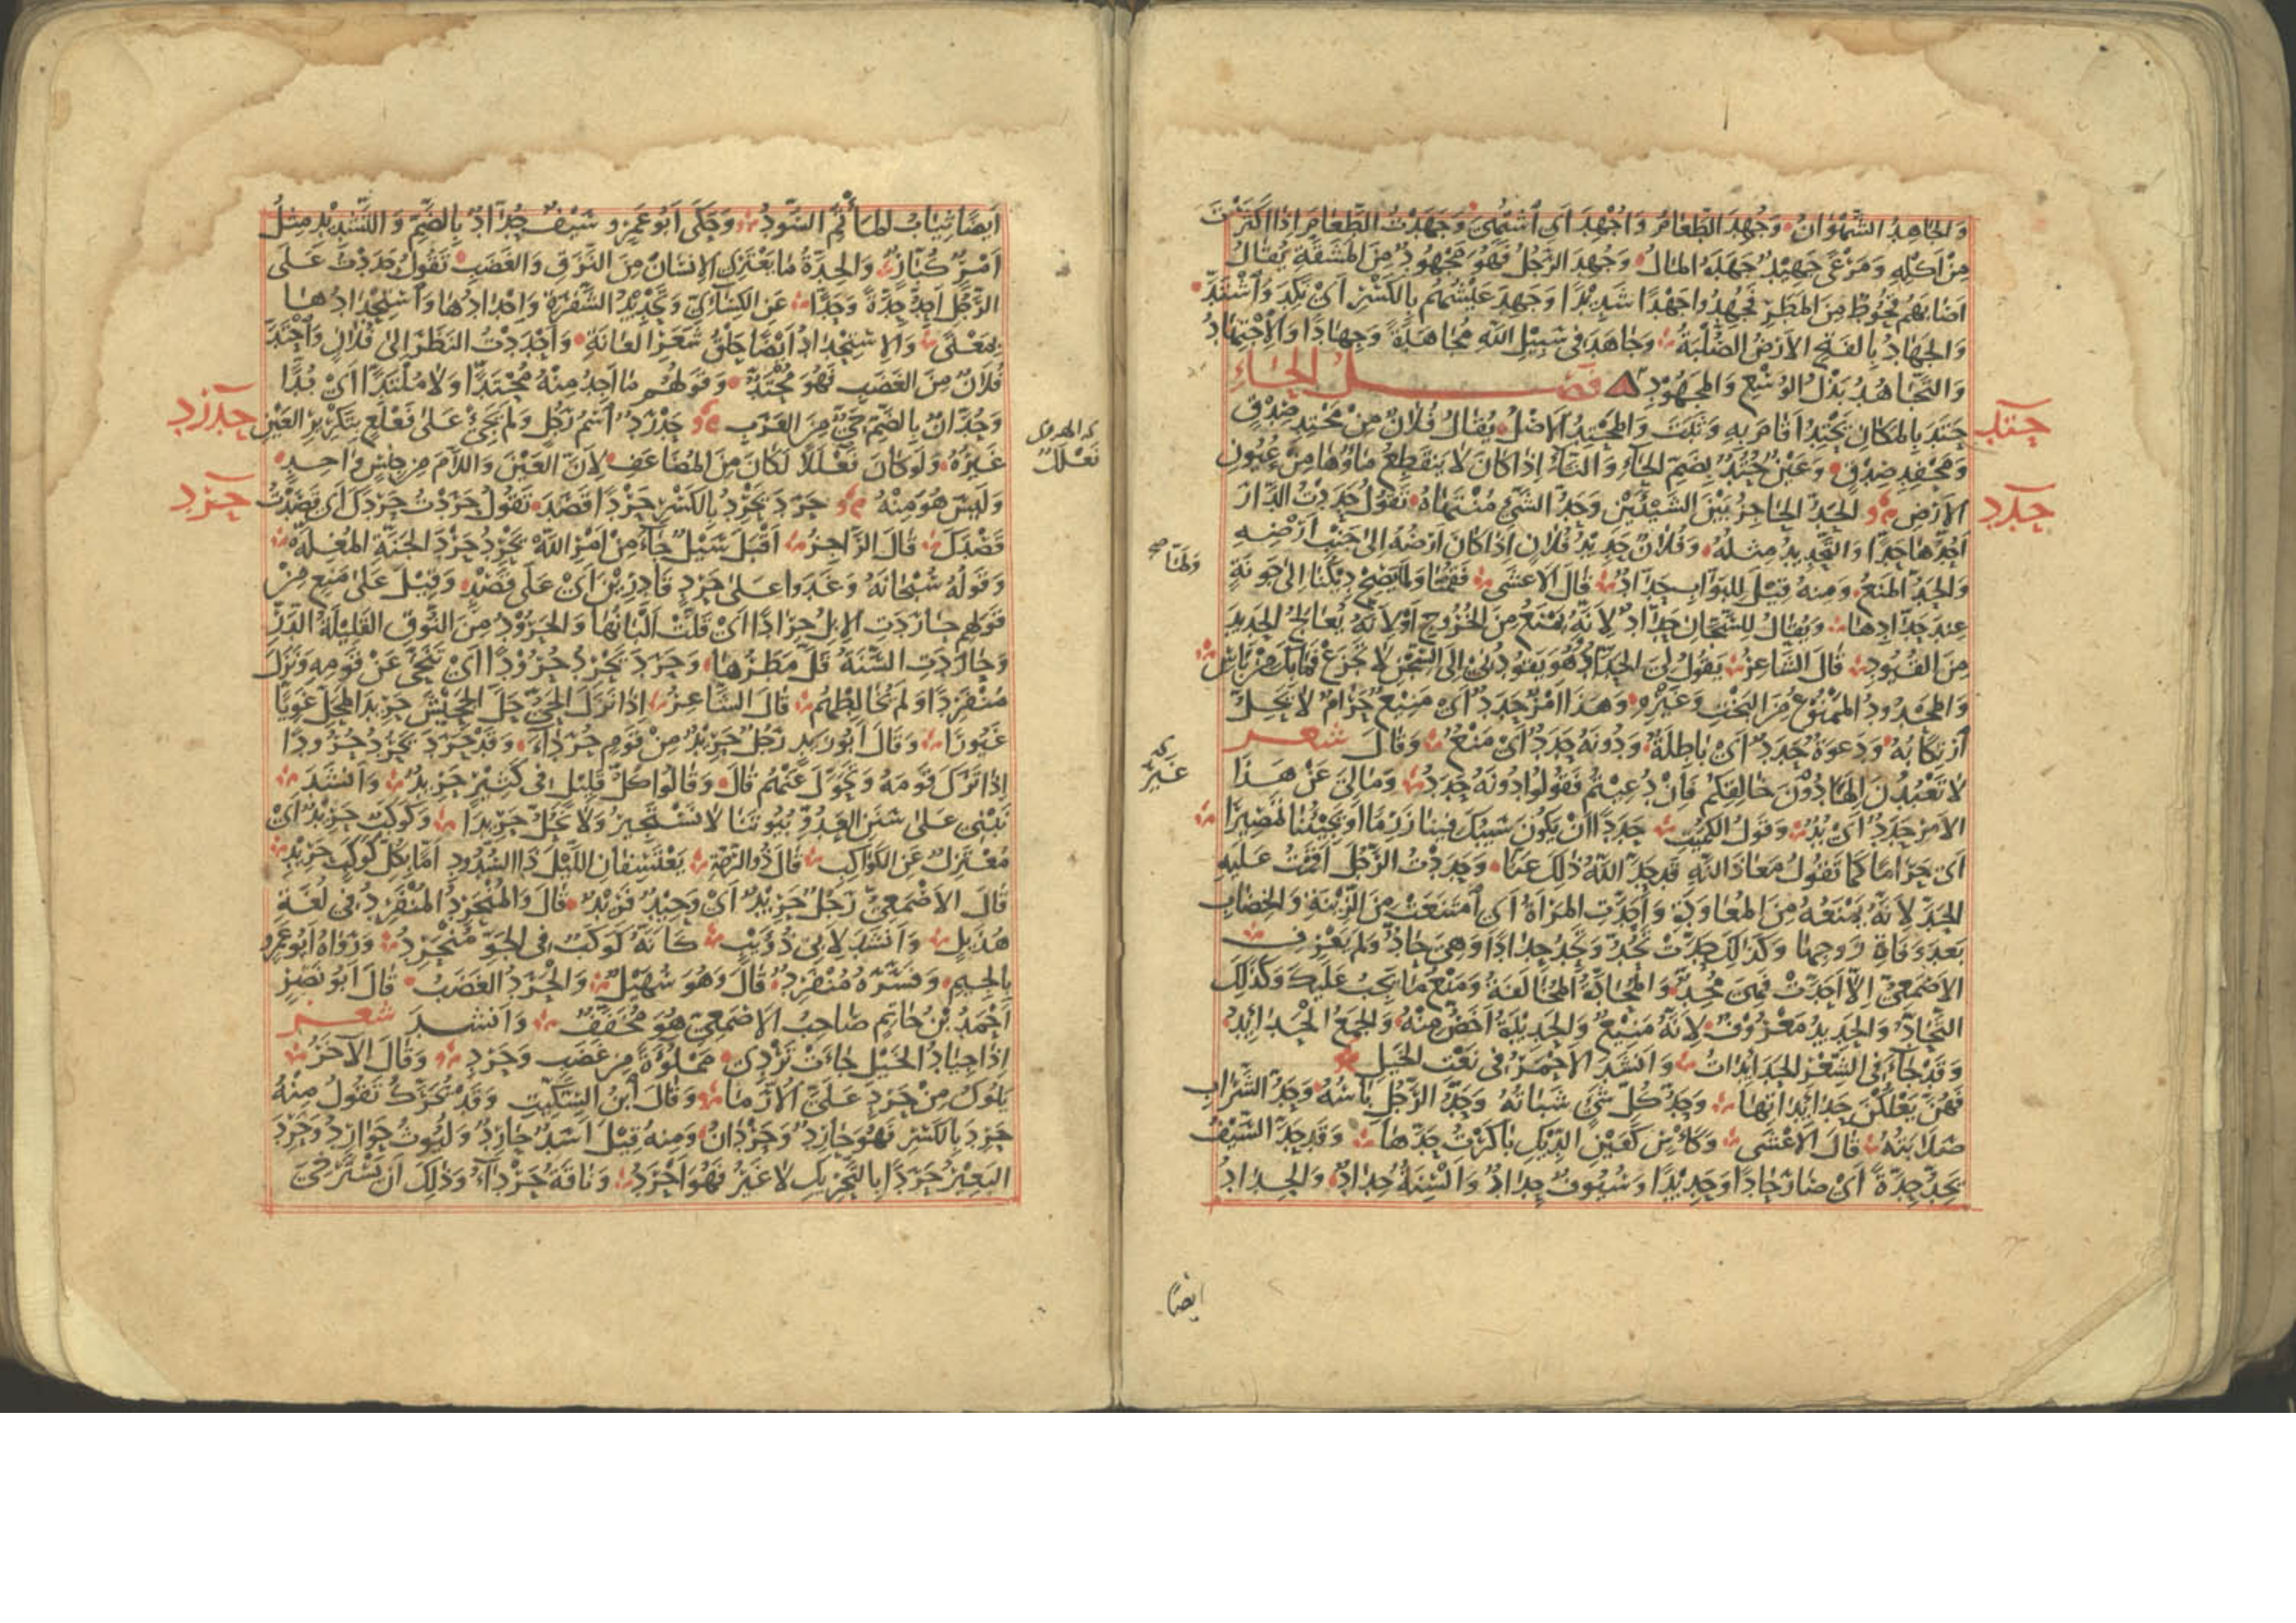 وَالجَاهِدُ الشَّهْوَانُ وَجُهِدَ الطَّعَامُ وَاُجْهِدَ اَى اُشْتُهِىَ وَجَهَدْتُ الطَّعَامَ اِذَا اَكْثَرْتَ
مِنْ اَكْلِهِ وَمَرْعًى جَهِيْدٌ جَهَدَهُ المَالُ وَجُهِدَ الرَّجُلُ فَهُوَ مَجْهُودٌ مِنَ المَشَقَّةِ يُقَالُ
اَصَابَهُمْ قُحُوطٌ مِنَ المَطَرِ فَجُهِدُوا جَهْدًا شَدِيْدًا وَجَهِدَ عَيْشُهُمْ بِالكَسْرِ اَىْ نَكِدَ وَاشْتَدَّ
وَالجَهَادُ بِالفَتْحِ الاَرْضُ الصُّلْبَةُ وَجَاهَدَ فِى سَبِيْلِ اللّٰهِ مُجَاهَدَةً وَجِهَادًا وَالاجْتِهَادُ
وَالتَّجَاهُدُ بَذْلُ الوُسْعِ وَالمَجْهُودِ فصل الحَاءِ
حتد
حَتَدَ بِالمَكَانِ يَحْتِدُ اَقَامَ بِهِ وَثَبَتَ وَالمَحْتِدُ الاَصْلُ يُقَالُ فُلَانٌ مِنْ مَحْتِدِ صِدْقٍ
وَمَحْفِدِ صِدْقٍ وَعَيْنٌ حُتُدٌ بِضَمِّ الحَاءِ وَالتَّاءِ اِذَا كَانَ لَا يَنْقَطِعُ مَاؤُهَا مِنْ عُيُونِ
حدد
الاَرْضِ الحَدُّ الحَاجِزُ بَيْنَ الشَّيْئَيْنِ وَحَدُّ الشَّىْءِ مُنْتَهَاهُ تَقُولُ حَدَدْتُ الدَّارَ
اَحُدُّهَا حَدًّا وَالتَّحْدِيدُ مِثْلُهُ وَفُلَانٌ حَدِيْدُ فُلَانٍ اِذَا كَانَ اَرْضُهُ اِلَى جَنْبِ اَرْضِهِ
وَالحَدُّ المَنْعُ وَمِنْهُ قِيْلَ لِلبَوَّابِ حَدَّادٌ قَالَ الاَعْشَى فَقُمْنَا وَلَمَّا يَصِحْ دِيْكُنَا اِلَى جَوْنَةٍ
وَلَمَّا صح
عِنْدَ حَدَّادِهَا وَيُقَالُ لِلسَّجَّانِ حَدَّادٌ لِاَنَّهُ يَمْنَعُ مِنَ الخُرُوجِ اَوْ لِاَنَّهُ يُعَالِجُ الحَدِيدَ
مِنَ القُيُودِ قَالَ الشَّاعِرُ يَقُولُ لِىَ الحَدَّادُ وَهُوَ يَقُودُنِى اِلَى السِّجْنِ لَا تَجْزَعْ فَمَا بِكَ مِنْ بَاسِ
وَالمَحْدُودُ المَمْنُوعُ مِنَ البَخْتِ وَغَيْرِهِ وَهَذَا اَمْرٌ حَدَدٌ اَىْ مَنِيْعٌ حَرَامٌ لَا يَحِلُّ
اِرْتِكَابُهُ وَدَعْوَةٌ حَدَدٌ اَىْ بَاطِلَةٌ وَدُونَهُ حَدَدٌ اَىْ مَنْعٌ وَقَالَ شعر
لَا تَعْبُدُنَّ اِلَهًا دُوْنَ خَالِقِكُمْ فَاِنْ دُعِيْتُمْ فَقُولُوا دُونَهُ حَدَدٌ وَمَالِىَ عَنْ هَذَا
الاَمْرِ حَدَدٌ اَىْ بُدٌّ وَقَوْلُ الكُمَيْتِ حَدَدًا اَنْ يَكُونَ سَيْبُكَ فِينَا زَرِمًا اَوْ يَجِيْئُنَا تَمْصِيْرًا
اَىْ حَرَامًا كَمَا تَقُولُ مَعَاذَ اللّٰهِ قَدْ حَدَّ اللّٰهُ ذٰلِكَ عَنَّا وَحَدَدْتُ الرَّجُلَ اَقَمْتُ عَلَيْهِ
الحَدَّ لِاَنَّهُ يَمْنَعُهُ مِنَ المُعَاوَدَةِ وَاَحَدَّتِ المَرْاَةُ اَىِ امْتَنَعَتْ مِنَ الزِّيْنَةِ وَالخِضَابِ
بَعْدَ وَفَاةِ زَوْجِهَا وَكَذٰلِكَ حَدَّتْ تَحُدُّ وَتَحِدُّ حِدَادًا وَهِىَ حَادٌّ وَلَمْ يَعْرِفِ
الاَصْمَعِىُّ اِلَّا اَحَدَّتْ فَهِىَ مُحِدٌّ وَالمُحَادَّةُ المُخَالَفَةُ وَمَنْعُ مَا يَجِبُ عَلَيْكَ وَكَذٰلِكَ
التَّحَادُّ وَالحَدِيدُ مَعْرُوْفٌ لِاَنَّهُ مَنِيْعٌ وَالحَدِيْدَةُ اَخَصُّ مِنْهُ وَالجَمْعُ الحَدَائِدُ
وَقَدْ جَاءَ فِى الشِّعْرِ الحَدَايِدَاتُ وَاَنْشَدَ الاَحْمَرُ فِى نَعْتِ الخَيْلِ
فَهُنَّ يَعْلُكْنَ حَدَايِدَاتِهَا وَحَدُّ كُلِّ شَىْءٍ شَبَاتُهُ وَحَدُّ الرَّجُلِ بَاسُهُ وَحَدُّ الشَّرَابِ
صَلَابَتُهُ قَالَ الاَعْشَى وَكَاْسٍ كَعَيْنِ الدِّيْكِ بَاكَرْتُ حَدَّهَا وَقَدْ حَدَّ السَّيْفُ
يَحِدُّ حِدَّةً اَىْ صَارَ حَادًّا وَحَدِيْدًا وَسُيُوفٌ حِدَادٌ وَاَلْسِنَةٌ حِدَادٌ وَالحِدَادُ
ايضًا
اَيْضًا ثِيَابُ المَاْتَمِ السُّودُ وَحَكَى اَبُو عَمْرٍو سَيْفٌ حُدَّادٌ بِالضَّمِّ وَالتَّشْدِيْدِ مِثْلُ
اَمْرٌ كُبَّارٌ وَالحِدَّةُ مَا يَعْتَرِى الاِنْسَانَ مِنَ النَّزَقِ وَالغَضَبِ تَقُولُ حَدَدْتُ عَلَى
الرَّجُلِ اَحِدُّ حِدَّةً وَحَدًّا عَنِ الكِسَائِىِّ وَتَحْدِيْدُ الشَّفْرَةِ وَاِحْدَادُهَا وَاسْتِحْدَادُهَا
بِمَعْنًى وَالاسْتِحْدَادُ اَيْضًا حَلْقُ شَعَرِ العَانَةِ وَاَحْدَدْتُ النَّظَرَ اِلَى فُلَانٍ وَاحْتَدَّ
فُلَانٌ مِنَ الغَضَبِ فَهُوَ مُحْتَدٌّ وَقَوْلُهُمْ مَا اَجِدُ مِنْهُ مُحْتَدًّا وَلَا مُلْتَدًّا اَىْ بُدًّا
حدرد
وَحُدَّانٌ بِالضَّمِّ حَىٌّ مِنَ العَرَبِ حَدْرَدٌ اسْمُ رَجُلٍ وَلَمْ يَجِئْ عَلَى فَعْلَعٍ بِتَكْرِيْرِ العَيْنِ
فَعْلَلٌ
غَيْرُهُ وَلَوْ كَانَ فَعْلَلًا لَكَانَ مِنَ المُضَاعَفِ لِاَنَّ العَيْنَ وَاللَّامَ مِنْ جِنْسٍ وَاحِدٍ
حرد
وَلَيْسَ هُوَ مِنْهُ حَرَدَ يَحْرِدُ بِالكَسْرِ حَرْدًا قَصَدَ تَقُولُ حَرَدْتُ حَرْدَكَ اَى قَصَدْتُ
قَصْدَكَ قَالَ الرَّاجِزُ اَقْبَلَ سَيْلٌ جَاءَ مِنْ اَمْرِ اللّٰهْ يَحْرِدُ حَرْدَ الجَنَّةِ المُغِلَّهْ
وَقَوْلُهُ سُبْحَانَهُ وَغَدَوْا عَلَى حَرْدٍ قَادِرِيْنَ اَىْ عَلَى قَصْدٍ وَقِيْلَ عَلَى مَنْعٍ مِنْ
قَوْلِهِمْ حَارَدَتِ الاِبِلُ حِرَادًا اَىْ قَلَّتْ اَلْبَانُهَا وَالحَرُوْدُ مِنَ النُّوقِ القَلِيلَةُ الدَّرِّ
وَحَارَدَتِ السَّنَةُ قَلَّ مَطَرُهَا وَحَرَدَ يَحْرِدُ حُرُوْدًا اَىْ تَنَحَّى عَنْ قَوْمِهِ وَنَزَلَ
مُنْفَرِدًا وَلَمْ يُخَالِطْهُمْ قَالَ الشَّاعِرُ اِذَا نَزَلَ الحَىُّ حَلَّ الجَحِيْشُ حَرِيدَ المَحَلِّ غَوِيًّا
غَيُورًا وَقَالَ اَبُو زَيْدٍ رَجُلٌ حَرِيْدٌ مِنْ قَوْمٍ حُرَدَاءَ وَقَدْ حَرَدَ يَحْرِدُ حُرُودًا
اِذَا تَرَكَ قَوْمَهُ وَتَحَوَّلَ عَنْهُمْ قَالَ وَقَالُوا كُلُّ قَلِيْلٍ فِى كَثِيْرٍ حَرِيْدٌ وَاَنْشَدَ
نَبْنِى عَلَى سَنَنِ العَدُوِّ بُيُوتَنَا لَا نَسْتَجِيْرُ وَلَا نَحُلُّ حَرِيْدًا وَكَوْكَبٌ حَرِيْدٌ اَىْ
مُعْتَزِلٌ عَنِ الكَوَاكِبِ قَالَ ذُو الرُّمَّةِ يَعْتَسِفَانِ اللَّيْلَ ذَا السُّدُودِ اَمًّا بِكُلِّ كَوْكَبٍ حَرِيْدِ
قَالَ الاَصْمَعِىُّ رَجُلٌ حَرِيْدٌ اَىْ وَحِيْدٌ فَرِيْدٌ قَالَ وَالمُنْحَرِدُ المُنْفَرِدُ فِى لُغَةِ
هُذَيْلٍ وَاَنْشَدَ لِاَبِى ذُؤَيْبٍ كَاَنَّهُ كَوْكَبٌ فِى الجَوِّ مُنْحَرِدٌ وَرَوَاهُ اَبُو عَمْرٍو
بِالجِيْمِ وَفَسَّرَهُ مُنْفَرِدٌ قَالَ وَهُوَ سُهَيْلٌ وَالحَرَدُ الغَضَبُ قَالَ اَبُو نَصْرٍ
اَحْمَدُ بْنُ حَاتِمٍ صَاحِبُ الاَصْمَعِىِّ هُوَ مُخَفَّفٌ وَاَنْشَدَ شعر
اِذَا جِيَادُ الخَيْلِ جَاءَتْ تَرْدِى مَمْلُوْءَةً مِنْ غَضَبٍ وَحَرْدِ وَقَالَ الآخَرُ
يَلُوكُ مِنْ حَرْدٍ عَلَىَّ الاُرَّمَا وَقَالَ ابْنُ السِّكِّيْتِ وَقَدْ تُحَرَّكُ تَقُولُ مِنْهُ
حَرِدَ بِالكَسْرِ فَهُوَ حَارِدٌ وَحَرْدَانُ وَمِنْهُ قِيْلَ اَسَدٌ حَارِدٌ وَلُيُوثٌ حَوَارِدُ وَحَرِدَ
البَعِيْرُ حَرَدًا بِالتَّحْرِيْكِ لَا غَيْرُ فَهُوَ اَحْرَدُ وَنَاقَةٌ حَرْدَاءُ وَذٰلِكَ اَنْ يَسْتَرْخِىَ